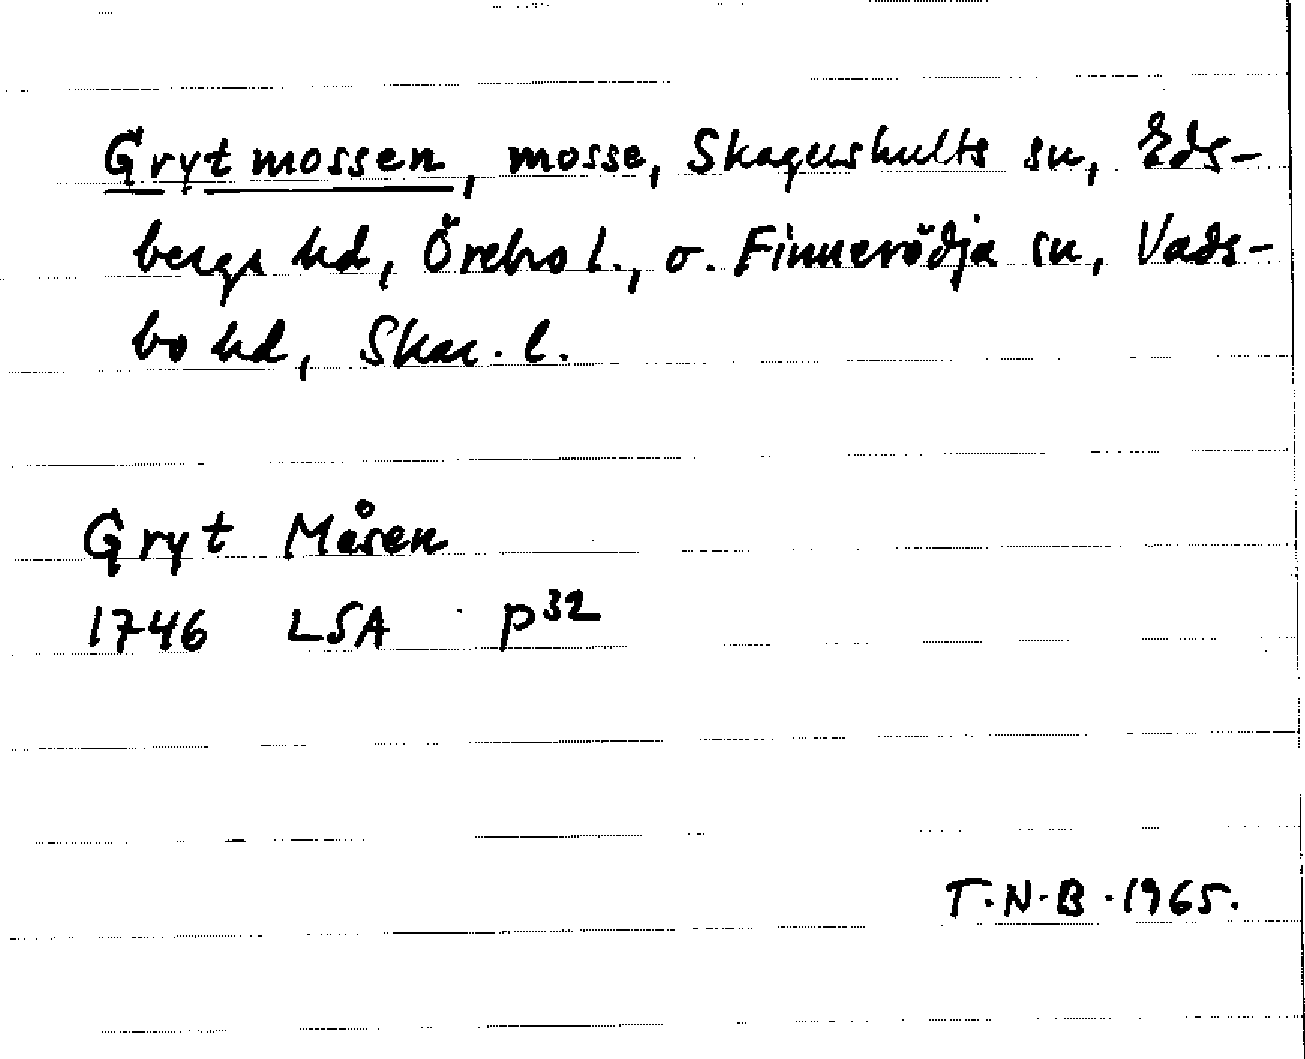 Grytmossen, mosse, Skagershults sn, Eds-
bergs hd, Örebro l., o. Finnerödja sn, Vads-
bo hd, Skar. l.
Gryt Måsen
1746 LSA p32
T.N.B. 1965.